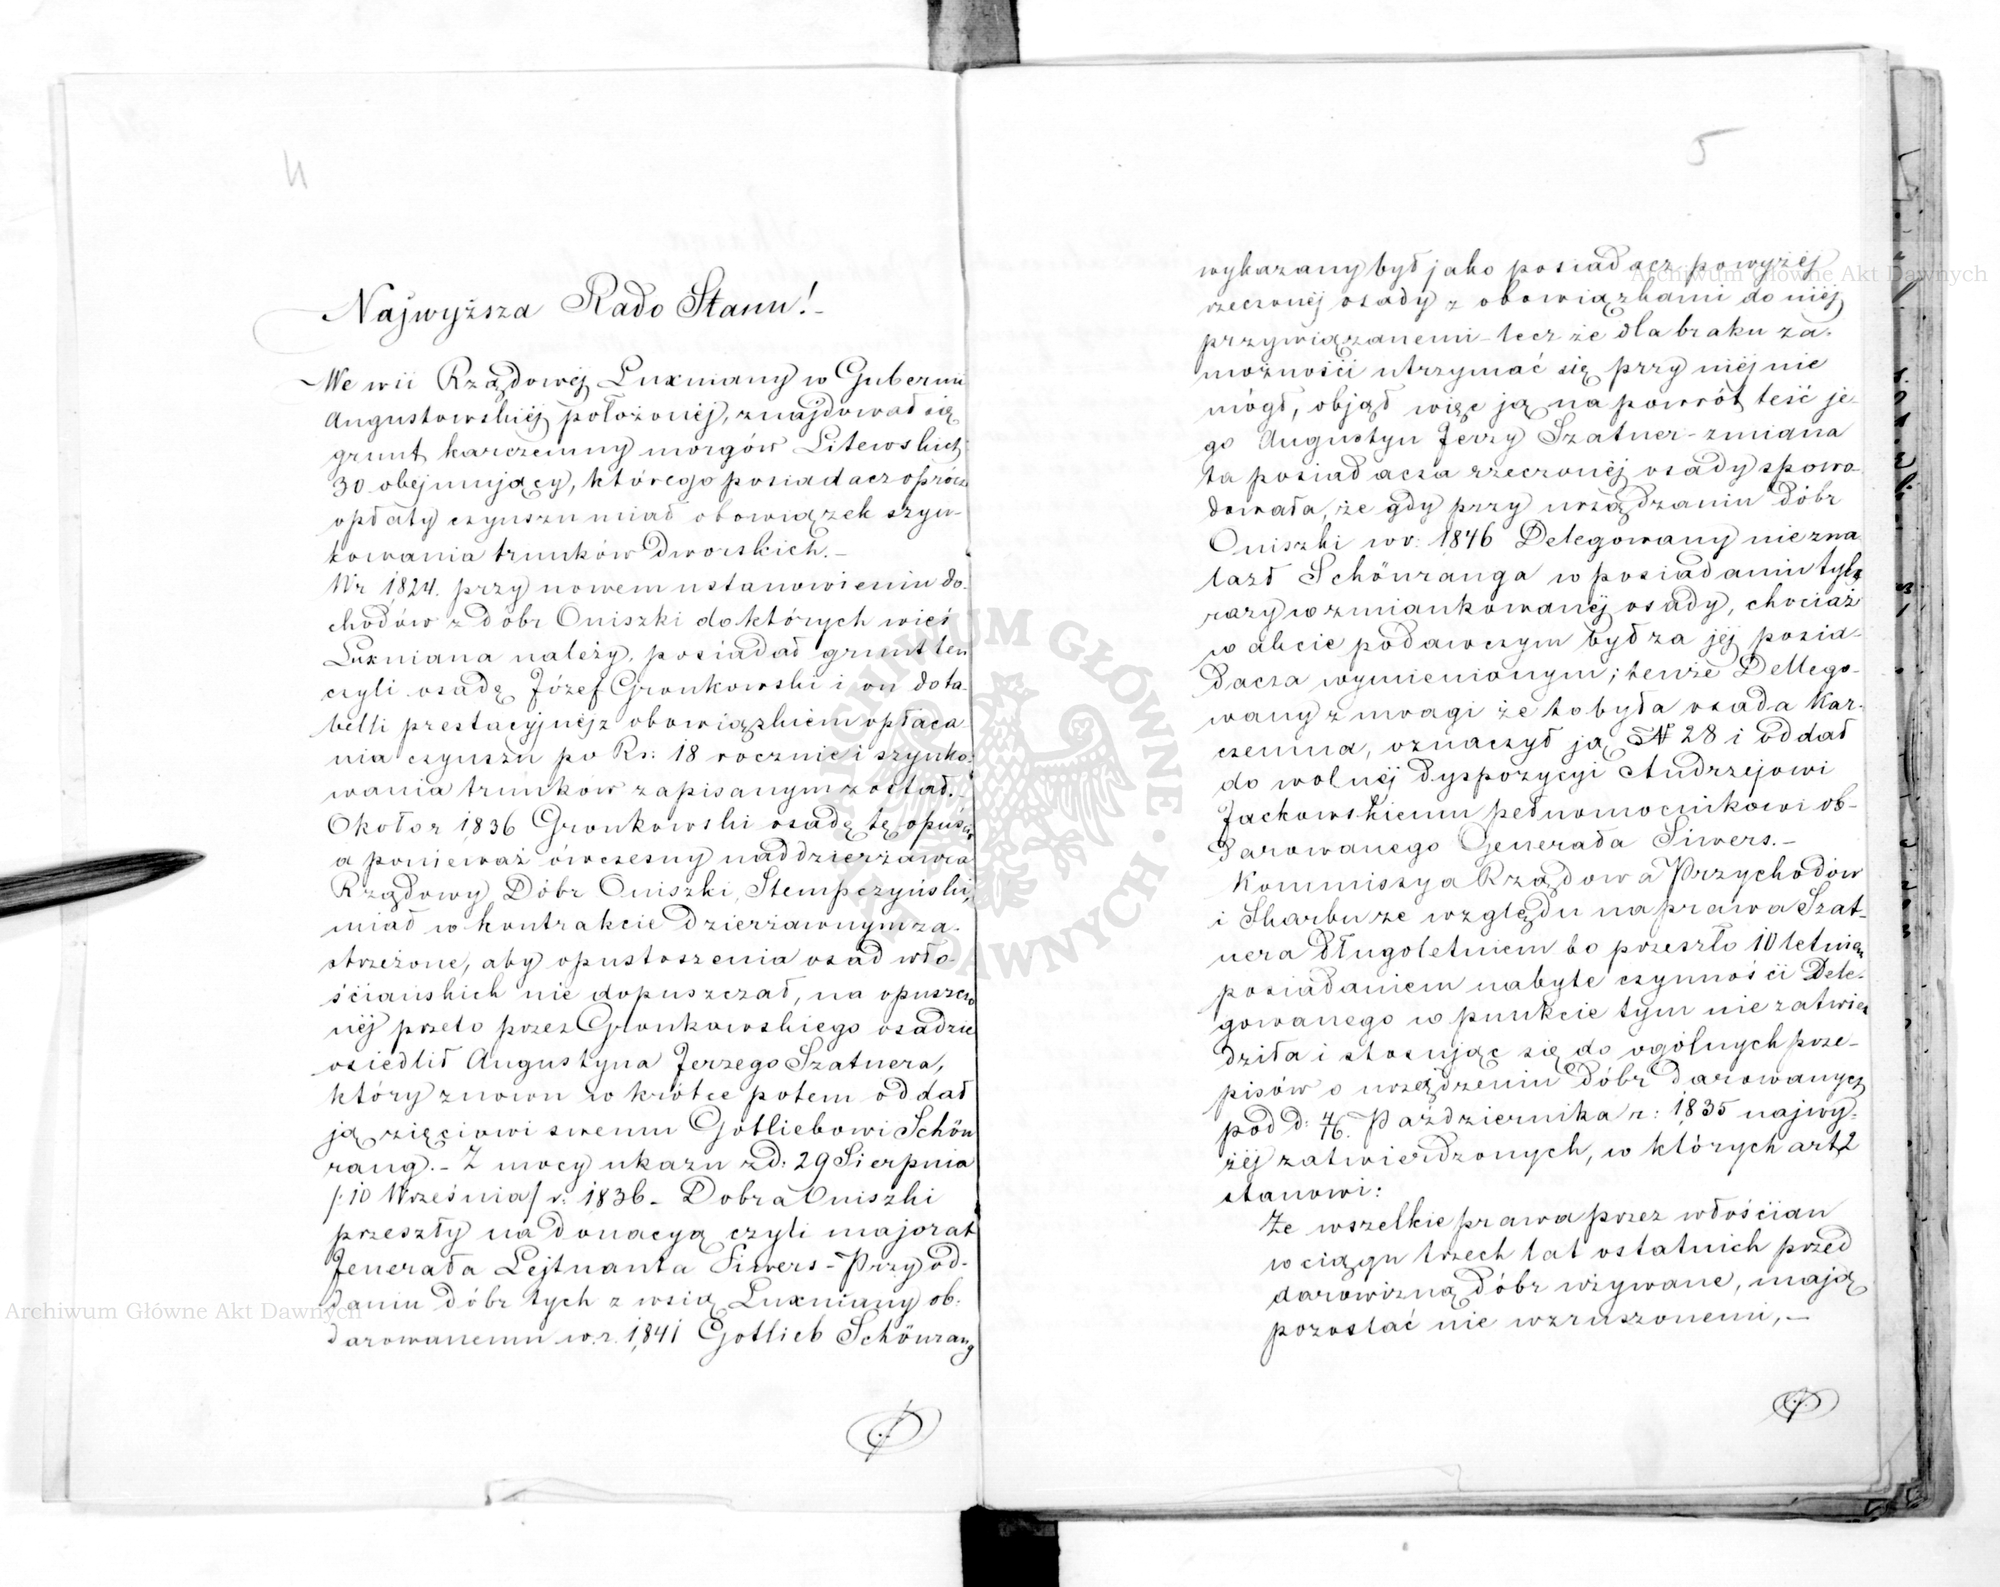 4
Najwyższa Rado Stanu!-
We wsi Rządowéj Luxniany w Gubernii
Augustowskiéj położonéj, znajdował się
grunt karczemny morgów Litewskich
30 obejmujący, którego posiadacz oprócz
opłaty czynszu miał obowiązek szyn-
kowania trunków Dworskich.-
W r 1824. przy nowem ustanowieniu do-
chodów z dóbr Oniszki do których wieś
Luxniana należy, posiadał grunt ten
czyli osadę Józef Gronkowski i on do ta-
belli prestacyjnéj z obowiązkiem opłaca-
nia czynszu po Rs: 18 rocznie i szynko-
wania trunków zapisanym został.-
Około r 1836 Gronkowski osadę tę opuścił
a ponieważ ówczesny naddzierżawca
Rządowy Dóbr Oniszki, Stempczyński,
miał w kontrakcie Dzierżawnym za-
strzeżone, aby opustoszenia osad wło-
ściańskich nie dopuszczał, na opuszczo
néj przeto przez Gronkowskiego osadzie
osiedlił Augustyna Jerzego Szatnera,
który znowu w krótce potem oddał
ją zięciowi swemu Gotliebowi Schön
rang.- Z mocy ukazu z d: 29 Sierpnia
/:10 Września/ r: 1836 - Dobra Oniszki
przeszły na donacyą czyli majorat
Jenerała Lejtnanta Siwers - Przy od-
daniu dóbr tych z wsią Luxniany ob-
darowanemu w r. 1841 Gotlieb Schönrang
5
wykazany był jako posiadacz powyżéj
rzeczonéj osady z obowiązkami do niéj
przywiązanemi - lecz że dla braku za-
możności utrzymać się przy niéj nie
mógł, objął więc ją na powrót teść je-
go Augustyn Jerzy Szatner - zmiana
ta posiadacza rzeczonéj osady spowo-
dowała, że gdy przy urządzaniu Dóbr
Oniszki w r: 1846 Delegowany nie zna
lazł Schönranga w posiadaniu tyle
razy wzmiankowanéj osady, chociaż
w akcie podawczym był za jéj posia-
dacza wymienionym; tenże Dellego-
wany z uwagi że to była osada Kar-
czemna, oznaczył ją N 28 i oddał
do wolnéj dyspozycyi Andrzejowi
Jackowskiemu pełnomocnikowi ob-
darowanego Generała Siwers.-
Kommissya Rządowa Przychodów
i Skarbu ze względu na prawa Szat-
nera długoletniem bo przeszło 10 letniem
posiadaniem nabyte czynności Dele-
gowanego w punkcie tym nie zatwier
dziła i stosując się do ogólnych prze-
pisów o urządzeniu Dóbr darowanych
pod d: Października r: 1835 najwy-
żéj zatwierdzonych, w których art 2
stanowi:
Że wszelkie prawa przez włościan
w ciągu trzech lat ostatnich przed
darowizną dóbr używane, mają
pozostać nie wzruszonemi,-
Archiwum Główne Akt Dawnych
Archiwum Główne Akt Dawnych
ARCHIWUM GŁÓWNE AKT DAWNYCH